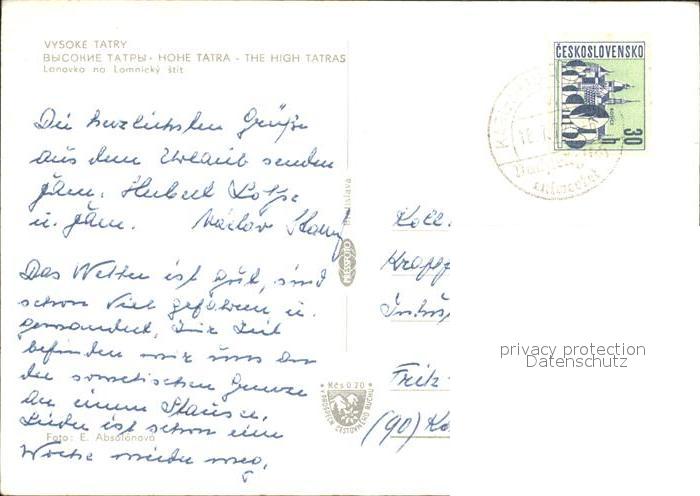 VYSOKÉ TATRY
ВЫСОКИЕ ТАТРЫ - HOHE TATRA - THE HIGH TATRAS
Lanovka na Lomnický štít
ČESKOSLOVENSKO
30 h
Die herzlichsten Grüße
aus dem Urlaub senden
Fam. Hubert
u. Fam. Václav
Das Wetter ist gut, sind
schon viel gefahren u.
gewandert. Zur Zeit
befinden wir uns an
der sowjetischen Grenze
an einem Stausee.
Leider ist schon eine
Woche wieder weg.
Foto: E. Absolónová
Bratislava
Kčs 0.20
Koll.
Fritz
(90)
privacy protection
Datenschutz